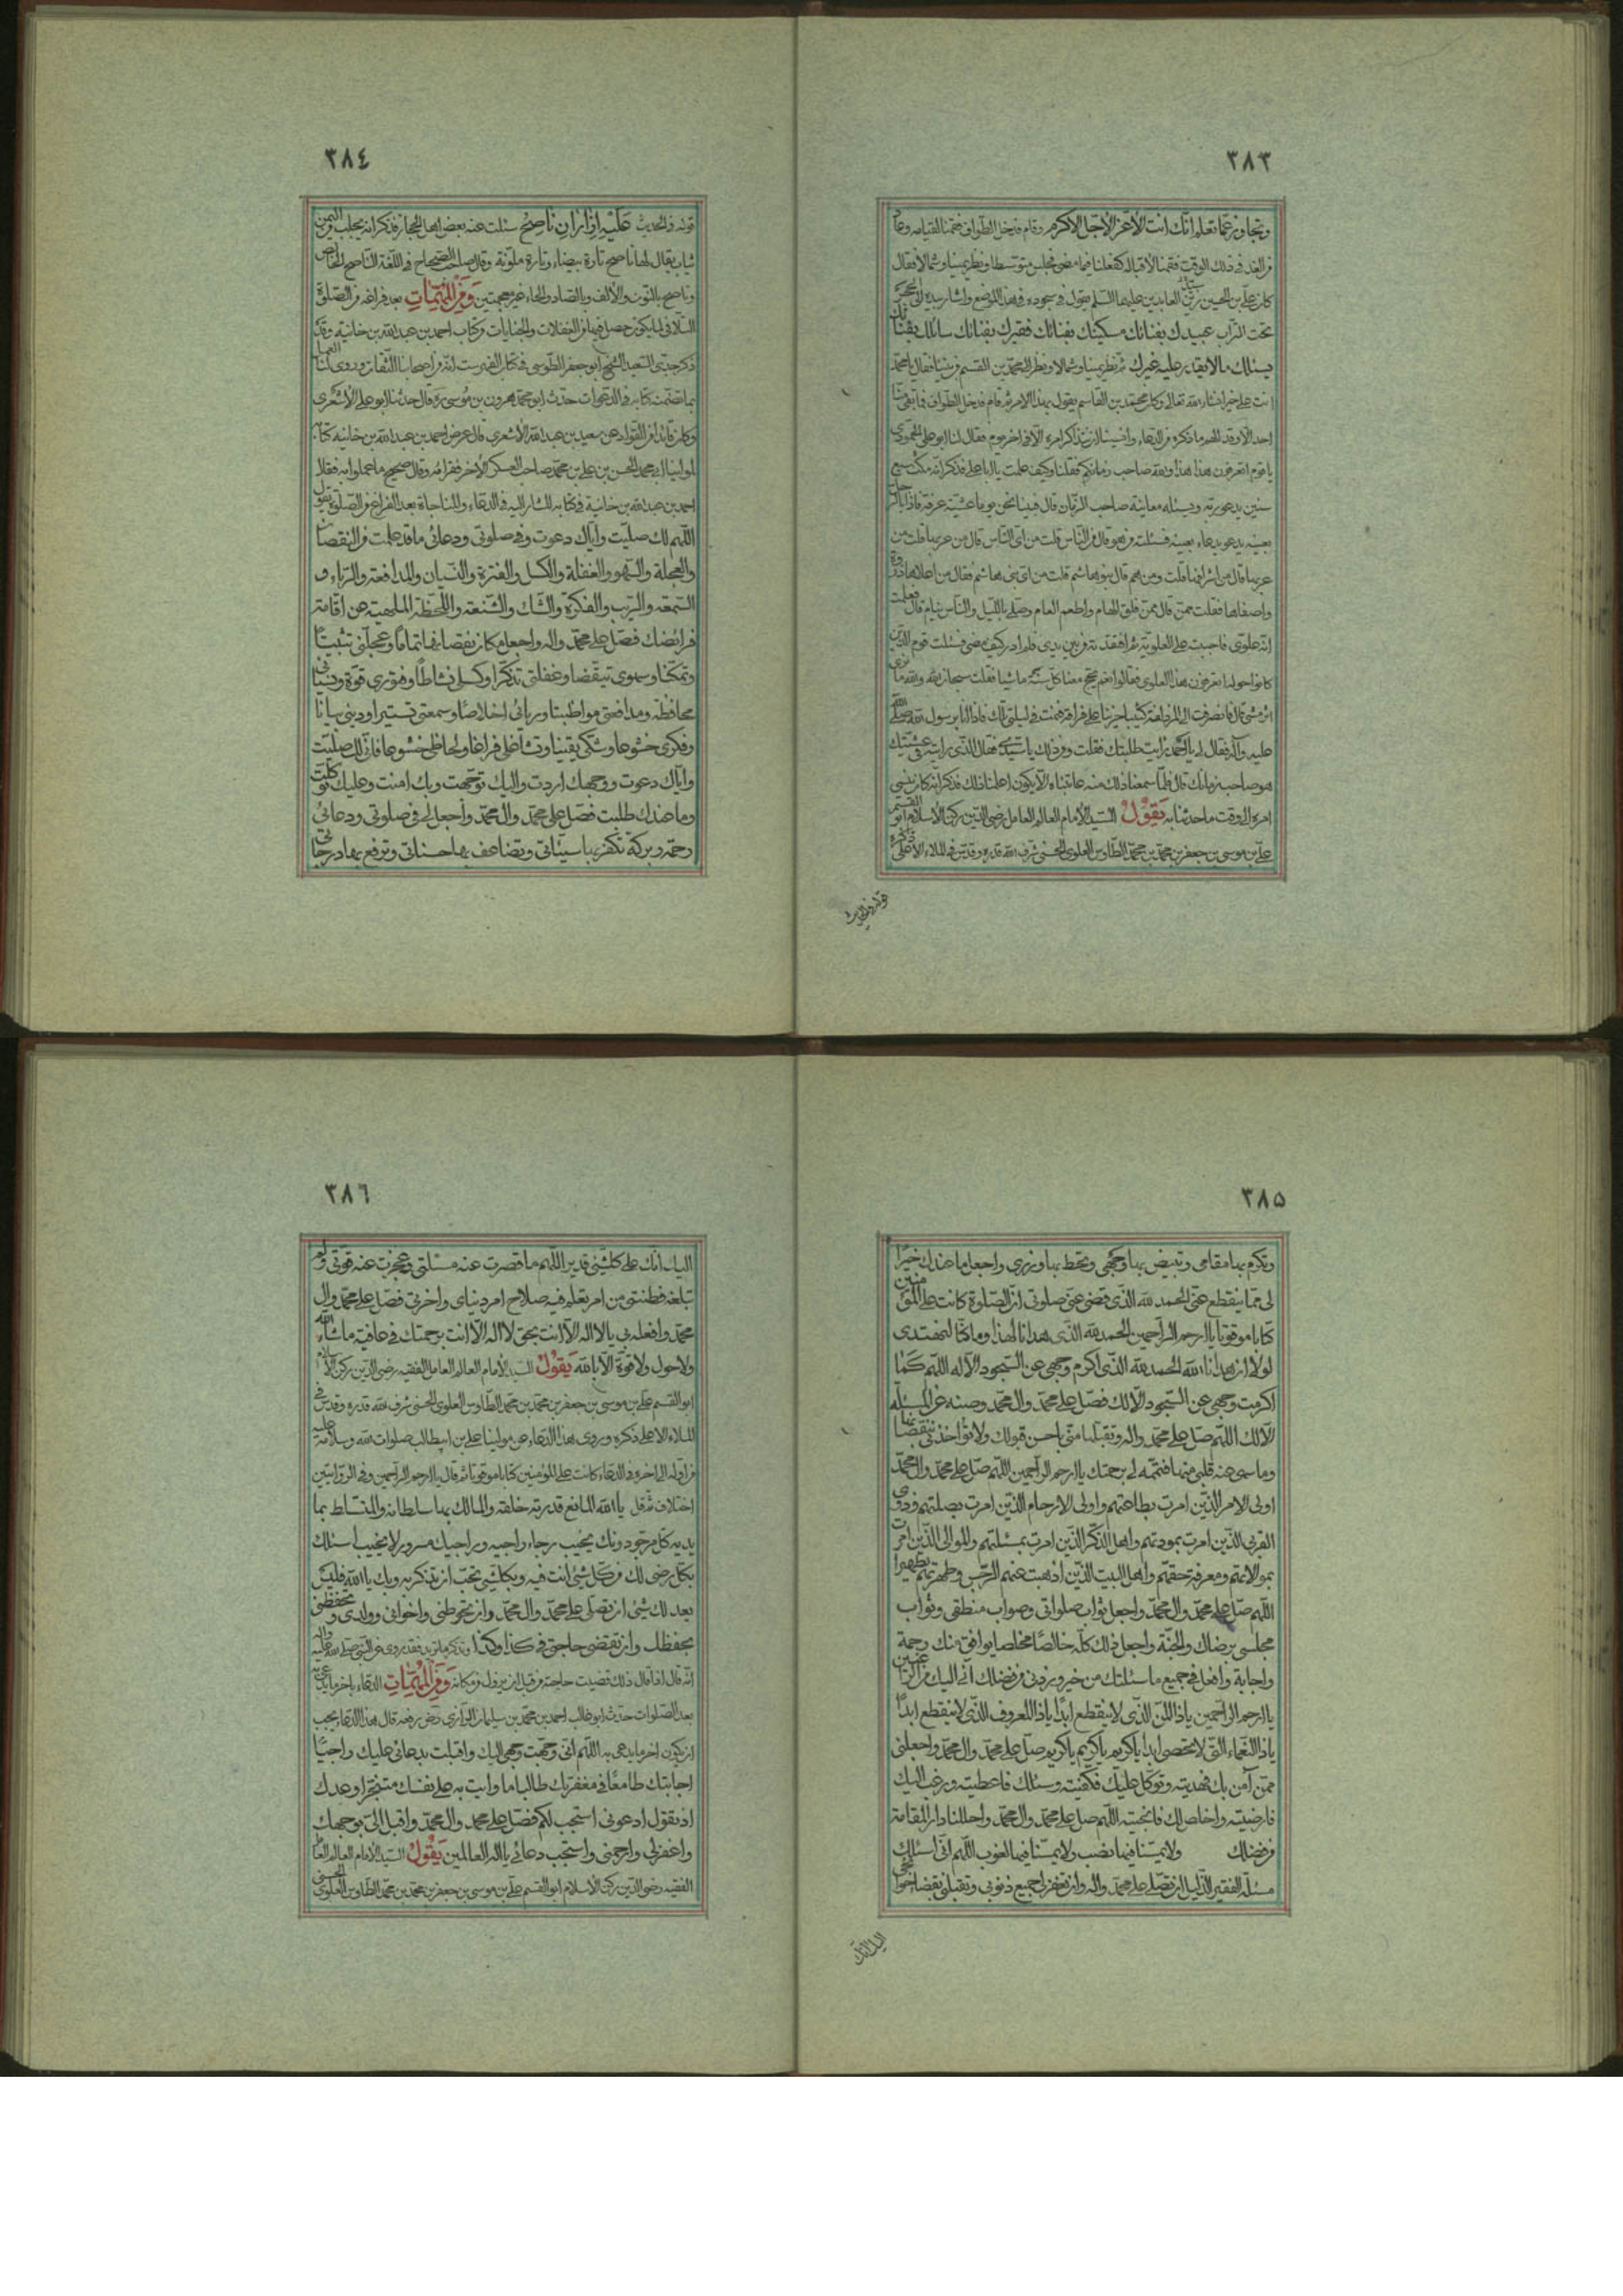 ٣٨٣
وتجاوز عمّا تعلم انّك انت الأعزّ الأجلّ الأكرم وقام فدخل الطواف فقمنا لقيامه وعاد
من الغد فى ذلك الوقت فقمنا لاقباله كفعلنا فيما مضى فجلس متوسّطا ونظر يمينا وشمالا فقال
كان علىّ بن الحسين زين العابدين عليهما السّلم يقول فى سجوده فى هذا الموضع واشار بيده الى الحجر
تحت التراب عبيدك بفنائك مسكينك بفنائك فقيرك بفنائك سائلك بفنائك
يسئلك ما لا يقدر عليه غيرك ثمّ نظر يمينا وشمالا ونظر الى محمّد بن القسم من بيننا فقال يا محمّد
انت على خير انشاء الله تعالى وكان محمّد بن القاسم يقول بهذا الامر ثم قام فدخل الطواف فما بقى منّا
احد الّا وقد الهم ما ذكره من الدعاء وانسينا ان نتذاكر امره الّا فى اخر يوم فقال لنا ابو على المحمودى
يا قوم اتعرفون هذا هذا والله صاحب زمانكم فقلنا وكيف علمت يا ابا على فذكر انّه مكث سبع
سنين يدعو ربّه ويسئله معاينة صاحب الزّمان قال فبينا نحن يوما عشيّة عرفة فاذا بالرجل
بعينه يدعو بدعاء بعينه فسئلته ممن هو قال من النّاس قلت من اىّ النّاس قال من عربها قلت من
عربها قال من اشرافها قلت ومن هم قال بنو هاشم قلت من اىّ بنى هاشم فقال من اعلاها ذروة
واصفاها فقلت ممن قال ممن فلق الهام واطعم الطعام وصلى بالليل والنّاس نيام قال فعلمت
انّه علوىّ فاحببته على العلويّة ثم افتقدته من بين يدى فلم ادر كيف مضى فسئلت قوم الذين
كانوا حوله اتعرفون هذا العلوى فقالوا نعم يحج معنا كلّ سنة ماشيا فقلت سبحان الله والله ما ارى
اثر مشى قال فانصرفت الى المزدلفة كئيبا حزينا على فراقه فنمت فى ليلتى تلك فاذا انا برسول الله صلّى الله
عليه وآله فقال لى يا احمد رايت طلبتك فقلت ومن ذلك يا سيّدى فقال الّذى رايته فى عشيّتك
هو صاحب زمانك قال فلمّا سمعنا ذلك منه عاتبناه الّا يكون اعلمنا ذلك فذكر انّه كان ينسى
امره الى وقت ما حدثنا به يَقُوْلُ السّيد الإمام العالم العامل رضى الدّين ركن الاسلام ابو القسم
علىّ بن موسى بن جعفر بن محمّد بن محمّد الطّاوس العلوى الحسنى شرف الله قدره وقدّس فى الملاء الأعلى ذكره
قوله فى الحديث
٣٨٤
قوله فى الحديث عَلَيْهِ اِزارانِ ناصحٌ سئلت عنه بعض اهل الحجاز فذكر انه يجلب من اليمن
ثياب يقال لها ناصح تارة بيضاء وتارة ملوّنة وقال صاحب الصحاح فى اللّغة النّاصح الخالص
وناصح بالنون والألف وبالصّاد والحاء غير معجمتين وَمِنَ الْمُهِمّاتِ بعد فراغه من الصّلوة
التلافى لما يكون حصل فيها من الغفلات والجنايات من كتاب احمد بن عبد الله بن خانبه وقد
ذكر جدّى السّعيد الشيخ ابو جعفر الطّوسى فى كتاب الفهرست انّه من اصحابنا الثّقات وروى لنا العمل
بما تضمّنه كتابه فى الدعوات حدث ابو محمّد هرون بن موسى ره قال حدّثنا ابو على الأشعرى
وكان قائدا من القوّاد عن سعيد بن عبد الله الأشعرى قال عرض احمد بن عبد الله بن خانبه كتابه
لمولينا ابى محمد الحسن بن على بن محمّد صاحب العسكر الأخر فقراه وقال صحيح فاعملوا به فقال
احمد بن عبد الله بن خانبه فى كتابه المشار اليه فى الدّعاء والمناجاة بعد الفراغ من الصّلوة يقول
اللّهم لك صلّيت وايّاك دعوت وفى صلوتى ودعائى ما قد علمت من النقصان
والعجلة والسّهو والغفلة والكسل والفترة والنّسيان والمدافعة والرّياء و
السّمعة والرّيب والفكرة والشّك والشّنعة واللّحظة الملهية عن اقامة
فرائضك فصلّ على محمّد واله واجعل مكان نقصانها تماما وعجلتى تثبيتا
وتمكّنا وسهوى تيقّضا وغفلتى تذكّرا وكسلى نشاطا وفتورى قوّة ونسيانى
محافظة ومدافعتى مواظبتا وريائى اخلاصا وسمعتى تستيرا وديبى بيانا
وفكرى خشوعا وشكّى يقينا وتشاغلى فراغا ولحاظى خشوعا فانّى لك صلّيت
وايّاك دعوت ووجهك اردت واليك توجّهت وبك امنت وعليك توكّلت
وما عندك طلبت فصلّ على محمّد وال محمّد واجعل لى فى صلوتى ودعائى
رحمة وبركة تكفّر بها سيّئاتى وتضاعف بها حسناتى وترفع بها درجاتى
٣٨٥
وتكرم بها مقامى وتبيض بها وجهى وتحطّ بها وزرى واجعل ما عندك خيرا
لى ممّا ينقطع عنّى الحمد لله الّذى قضى عنّى صلوتى انّ الصّلوة كانت على المؤمنين
كتابا موقوتا يا ارحم الرّاحمين الحمد لله الّذى هدانا لهذا وما كنّا لنهتدى
لولا ان هدانا الله الحمد لله الّذى اكرم وجهى عن السّجود الّا له اللّهم كما
اكرمت وجهى عن السّجود الّا لك فصلّ على محمّد وال محمّد وصنه عن المسئلة
الّا لك اللّهم صلّ على محمّد واله وتقبّلها منّى باحسن قبولك ولا تؤاخذنى بنقصانها
وما سهى عنه قلبى منها فتمّمه لى برحمتك يا ارحم الرّاحمين اللّهم صلّ على محمّد وال محمّد
اولى الامر الّذين امرت بطاعتهم واولى الارحام الّذين امرت بصلتهم وذوى
القربى الّذين امرت بمودتهم واهل الذّكر الّذين امرت بمسئلتهم والموالى الّذين امرت
بموالاتهم ومعرفة حقّهم واهل البيت الّذين اذهبت عنهم الرّجس وطهّرتهم تطهيرا
اللّهم صلّ على محمّد وال محمّد واجعل ثواب صلواتى وصواب منطقى وثواب
مجلسى رضاك والجنّة واجعل ذلك كلّه خالصا مخلصا يوافق منك رحمة
واجابة وافعل فى جميع ما سئلتك من خير وزدنى من فضلك انّى اليك من الراغبين
يا ارحم الرّاحمين يا ذا المنّ الّذى لا ينقطع ابدا يا ذا المعروف الّذى لا ينقطع ابدا
يا ذا النّعماء الّتى لا تحصى ابدا يا كريم يا كريم يا كريم صلّ على محمّد وال محمّد واجعلنى
ممّن آمن بك فهديته وتوكّل عليك فكفيته وسئلك فاعطيته ورغب اليك
فارضيته واخلص لك فانجيته اللّهم صل على محمّد وال محمّد واحللنا دار المقامة
من فضلك ولا يمسّنا فيها نصب ولا يمسّنا فيها لغوب اللّهم انّى اسئلك
مسئلة الفقير الذّليل ان تصلّى على محمّد واله وان تغفر لى جميع ذنوبى وتقبلنى بقضاء حوائجى
اليك انّك
٣٨٦
اليك انّك على كلّ شيئ قدير اللّهم ما قصرت عنه مسئلتى وعجزت عنه قوّتى ولم
تبلغه فطنتى من امر تعلم فيه صلاح امر دنياى واخرتى فصلّ على محمّد وال
محمّد وافعله بى يا لا اله الّا انت بحقّ لا اله الّا انت برحمتك فى عافية ماشاء الله
ولا حول ولا قوّة الّا بالله يَقُوْلُ السيد الإمام العالم العامل الفقيه رضى الدّين ركن الاسلام
ابو القسم علىّ بن موسى بن جعفر بن محمّد بن محمّد الطّاوس العلوى الحسنى شرف الله قدره وقدس فى
الملاء الاعلى ذكره وروى هذا الدّعاء عن مولينا على بن ابيطالب صلوات الله وسلامه عليه
من اوّله الى اخره فى الدعاء كانت على المؤمنين كتابا موقوتا ثم قال يا ارحم الرّاحمين وفى الرّوايتين
اختلاف ثم قل يا الله المانع قدرته خلقه والمالك بها سلطانه والمتسلّط بما
يديه كلّ مرجوّ دونك يخيب رجاء راجيه وراجيك مسرور لا يخيب اسئلك
بكلّ رضى لك من كلّ شيئ انت فيه وبكلّ شيئ تحبّ ان تذكر به وبك يا الله فليس
يعد لك شيئ ان تصلّى على محمّد وال محمّد وان تحوطنى واخوانى وولدى وتحفظنى
بحفظك وان تقضى حاجتى فى كذا وكذا وتذكر ما تريد فقد روى عن النّبى صلى الله عليه واله
انّه قال اذا قال ذلك قضيت حاجته من قبل ان يزول من مكانه وَمِنَ الْمُهِمّاتِ الدّعاء باخر ما يدعى به
بعد الصّلوات حدث ابو غالب احمد بن محمّد بن سليمان الزرارى رض رفعه قال هذا الدّعاء يجب
ان يكون اخر ما يدعى به اللّهم انّى وجّهت وجهى اليك واقبلت بدعائى عليك راجيا
اجابتك طامعا فى مغفرتك طالبا ما وايت به على نفسك متنجّزا وعدك
اذ تقول ادعونى استجب لكم فصلّ على محمد وال محمّد واقبل الىّ بوجهك
واغفر لى وارحمنى واستجب دعائى يا اله العالمين يَقُوْلُ السيّد الإمام العالم العامل
الفقيه رضى الدّين ركن الاسلام ابو القسم علىّ بن موسى بن جعفر بن محمّد بن محمّد الطّاوس العلوى الحسنى